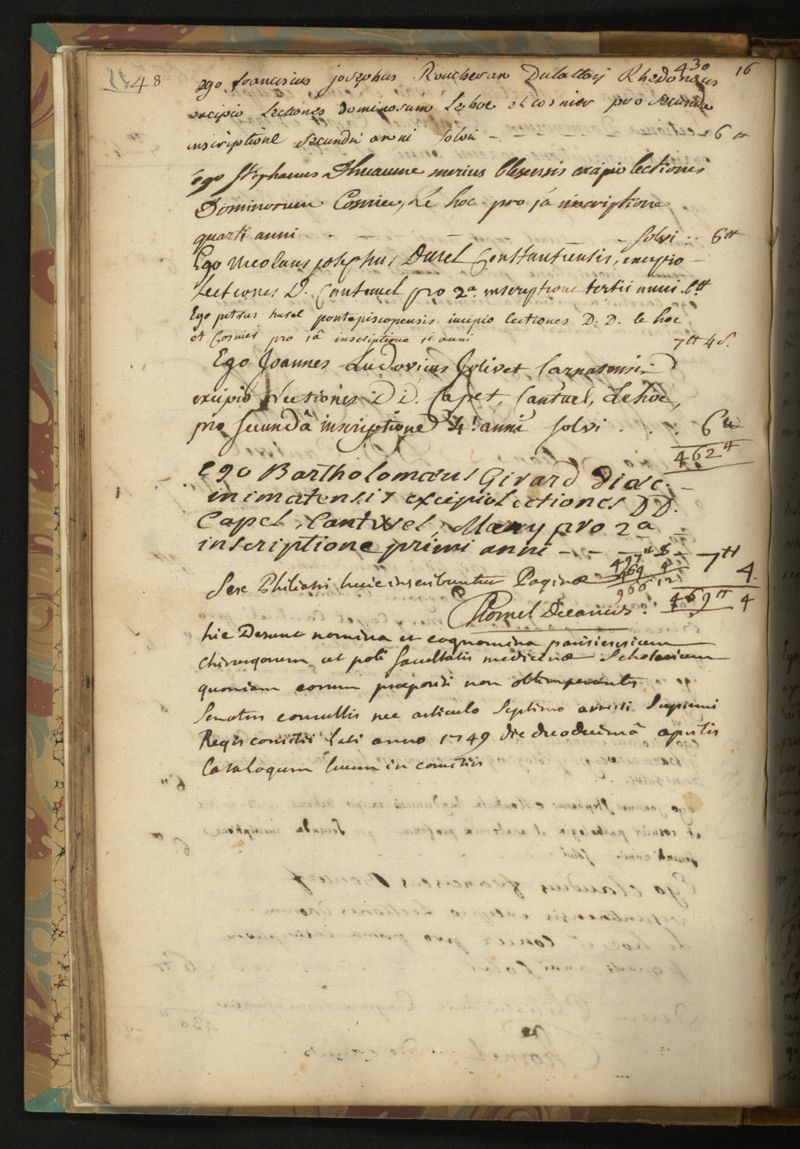 48
430 16
ego franciscus josephus Roucheran Dulattaij Rhedonæus
excipio Lectiones dominorum Lehoc et cosnier pro secunda
inscriptione secundi anni solvi - 6 tt
Ego Stephanus Dhuaume merius blesensis excipio lectiones
Dominorum Cosnier, Le hoc pro ja inscriptione
quarti anni - solvi : 6 tt
Ego Nicolaus josephus Durel Constantiensis, excipio
Lectiones D. Cantwel pro 2a. inscriptione tertii anni. 6 tt
Ego petrus hurel pontepiscopensis incipio lectiones D. D. le hoc
et Cosnier pro jâ inscriptione anni 7 tt 4 s.
Ego Joannes Ludovicus Jolivet Carnotensis
excipio Lectiones D D. Capet, Cantuel, Lehoc,
pro secundâ inscriptione 4i. anni solvi . . . 6 tt
462 tt
Ego Bartholomæus Girard diac.
inimatensis excipio Lectiones DD.
Capel, Cantwel, Many pro 2a
inscriptione primi anni - - - 7 tt 4
497 tt 8
469 4
966 12
Sex Philiatri huic inscribuntur Paginæ
469 tt 4
Chomel Decanus.
hic Desunt nomina et cognomina parisiensium
chirurgorum ut poti facultatis medicinæ Scholarium
quoniam eorum præpositi non obtemperantes
Senatus consultis nec articulo Septimo arresti Supremi
Regis consilii lati anno 1749 die duodecimâ aprilis
Catalogum suum in comitiis